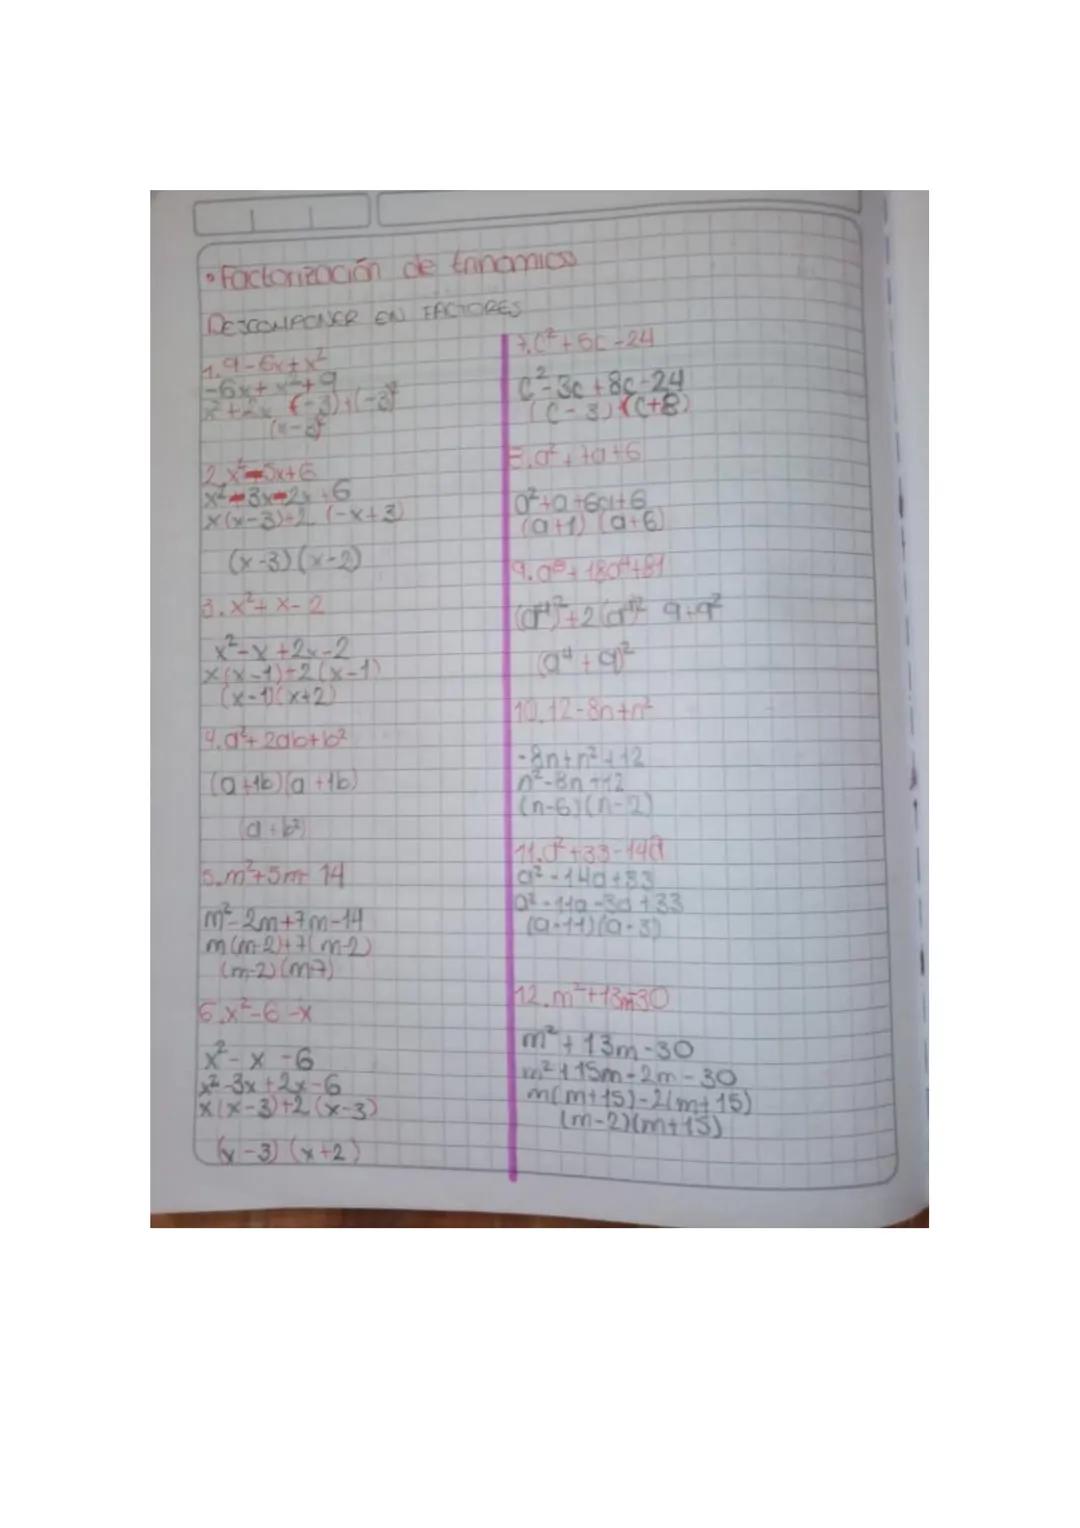 • Factorización de trinomios
DESCOMPONER EN FACTORES
1. 9-6x+x²
-6x+x²+9
x²+2x (-3)+(-3)²
(x-3)²
2. x²-5x+6
x²-3x-2x+6
x(x-3)+2 (-x+3)
(x-3)(x-2)
3. x²+x-2
x²-x+2x-2
x(x-1)+2(x-1)
(x-1)(x+2)
4. a²+2ab+b²
(a+1b)(a+1b)
(a+b²)
5. m²+5m-14
m²-2m+7m-14
m(m-2)+7(m-2)
(m-2)(m+7)
6. x²-6-x
x²-x-6
x²-3x+2x-6
x(x-3)+2(x-3)
(x-3)(x+2)
7. c²+5c-24
c²-3c+8c-24
(c-3)(c+8)
8. a²+7a+6
a²+a+6a+6
(a+1)(a+6)
9. a⁸+18a⁴+81
(a⁴+9)²
10. 12-8n+n²
-8n+n²+12
n²-8n+12
(n-6)(n-2)
11. a²+33-14a
a²-14a+33
a²-11a-3a+33
(a-11)(a-3)
12. m²+13m-30
m²+13m-30
m²+15m-2m-30
m(m+15)-2(m+15)
(m-2)(m+15)